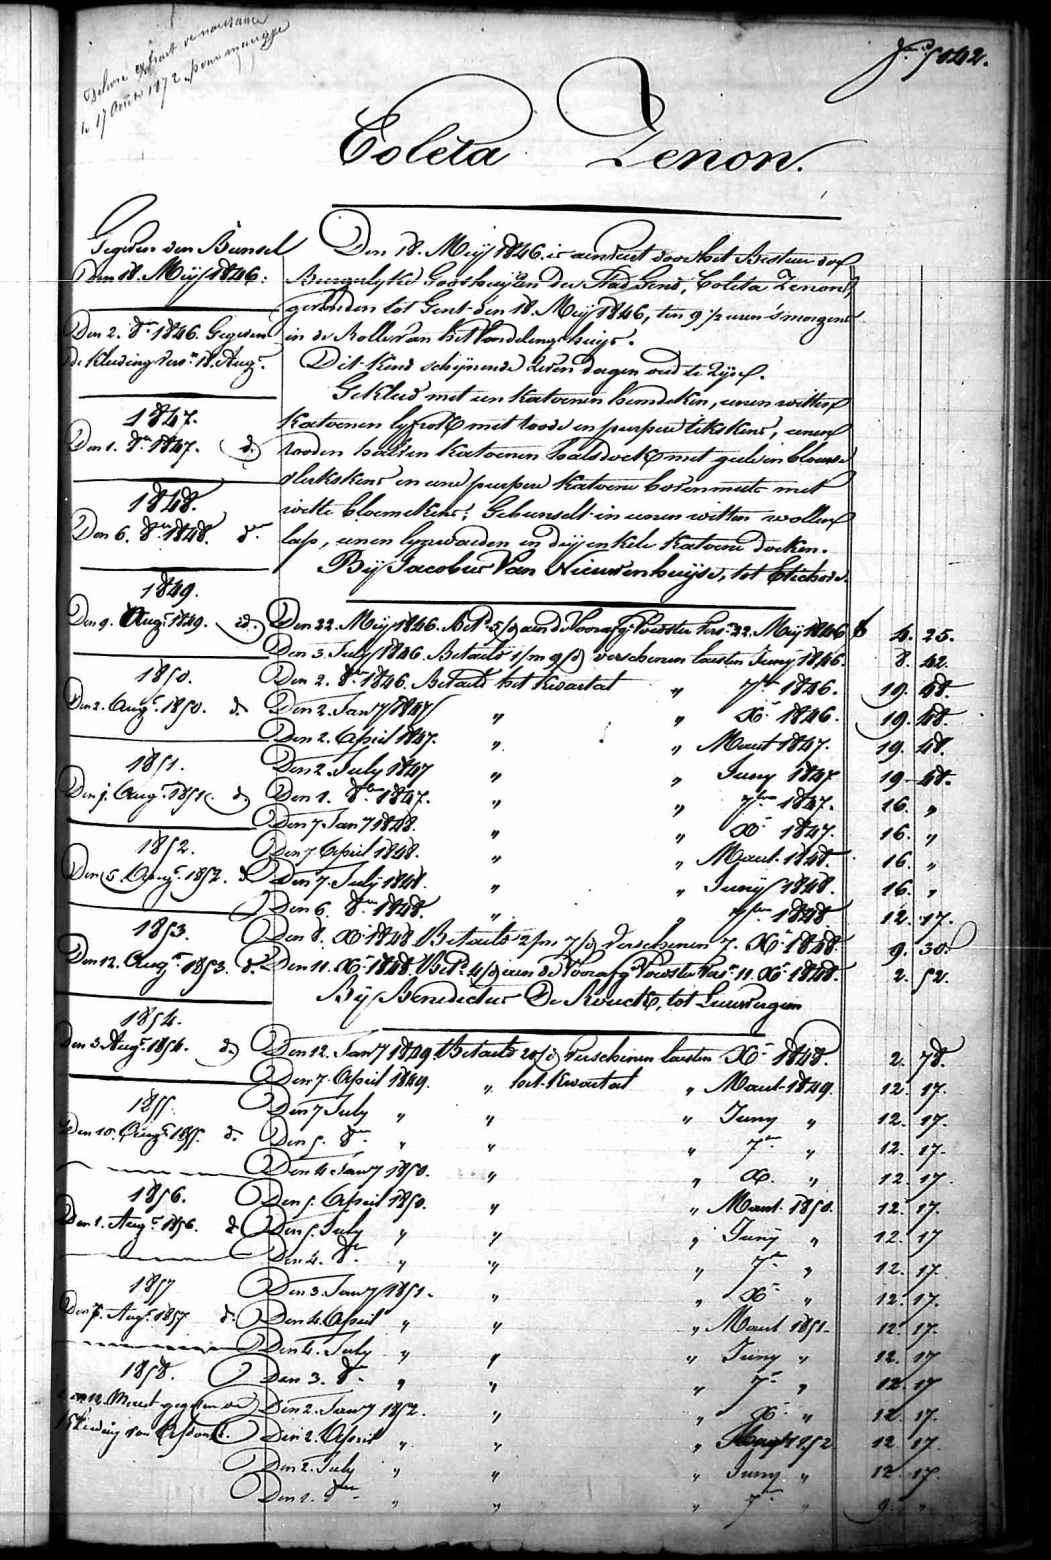 Delivré extrait de naissance
le 17 Août 1872 pour mariage
N.° 5042.
Coleta Zenon.
Gegeven den Bunsel
Den 18. Meij 1846.
Den 2. 8.er 1846. Gegeven
de Kleeding vers.n 18. Aug.t
1847.
Den 1. 8.er 1847. d.o
1848.
Den 6. 8.er 1848. d.o
1849.
Den 9. Aug.t 1849. id.
1850.
Den 2. Aug.t 1850. d.o
1851.
Den 1. Aug.t 1851. d.o
1852.
Den 5. Aug.t 1852. d.o
1853.
Den 12. Aug.t 1853. d.o
1854.
Den 3 Aug.t 1854. d.o
1855.
Den 10. Aug.t 1855. d.o
1856.
Den 1. Aug.t 1856. d.o
1857
Den 7. Aug.t 1857 d.o
1858.
Den 12. Meert gegeven de
Kleeding van
Den 18. Meij 1846. is aenveert door het Bestuer der
Burgerlyke Godshuyzen der Stad Gend, Coleta Zenon,
gevonden tot Gent den 18. Meij 1846, ten 9 1/2 uren 's morgens
in de Rolle van het Vondelinghuijs.
Dit Kind schijnende zeven dagen oud te zijn.
Gekleed met een Katoenen hemdeken, eenen witten
Katoenen lyfrok met roode en purpere tikskens, eenen
rooden halven Katoenen halsdoek met geele en blauwe
vlekskens en eene purpere Katoene bovenmuts met
witte bloemekens; Gebunselt in eenen witten wollen
lap, eenen lynwaeden en drij enkele Katoene doeken.
Bij Jacobus Van Nieuwenhuijse, tot Etichove.
Den 22. Meij 1846. Bet.d 5/d aen de Voorafg. Voedster vers.n 22. Meij 1846 f 4. 25.
Den 3. July 1846. Betaeld 1/m 9/d verschenen laesten Junij 1846. 8. 42.
Den 2. 8.er 1846. Betaeld het Kwartael " 7.ber 1846. 19. 48.
Den 2. Jan.y 1847 " " X.r 1846. 19. 48.
Den 2. April 1847. " " Maert 1847. 19. 48.
Den 2. July 1847 " " Juny 1847 19. 48.
Den 1. 8.ber 1847. " " 7.ber 1847. 16. "
Den 7. Jan.y 1848. " " X.r 1847. 16. "
Den 7 April 1848. " " Maert 1848. 16. "
Den 7. July 1848. " " Junij 1848. 16. "
Den 6. 8.er 1848. " " 7.ber 1848 12. 17.
Den 8. X.r 1848 Betaeld 2/m 7/d Verschenen 7. X.r 1848. 9. 30.
Den 11. X.r 1848. Bet.d 4/d aen de Voorafg. Voedster vers.n 11. X.r 1848. 2. 52.
Bij Benedictus De Kouck, tot Leeuwergem
Den 12. Jan.y 1849. Betaeld 20/d Verschenen laesten X.r 1848. 2. 78.
Den 7. April 1849. " het Kwartael " Maert 1849. 12. 17.
Den 7 July " " Juny " 12. 17.
Den 5. 8.er " " " 7.er " 12. 17.
Den 4 Jan.y 1850. " " X.r " 12. 17.
Den 5. April 1850. " " Maert 1850. 12. 17.
Den 5. July " " " Juny " 12. 17
Den 4. 8.er " " " 7.er " 12. 17.
Den 3. Jan.y 1851. " " X.r " 12. 17.
Den 4. April " " " Maert 1851. 12. 17.
Den 4. July " " " Juny " 12. 17
Den 3. 8.er " " " 7.er " 12. 17
Den 2. Jan.y 1852. " " X.r " 12. 17.
Den 2. April " " " 1852 12. 17.
Den 2. July " " " Juny " 12. 17.
Den 1. 8.er " " " 7.er " 9. "